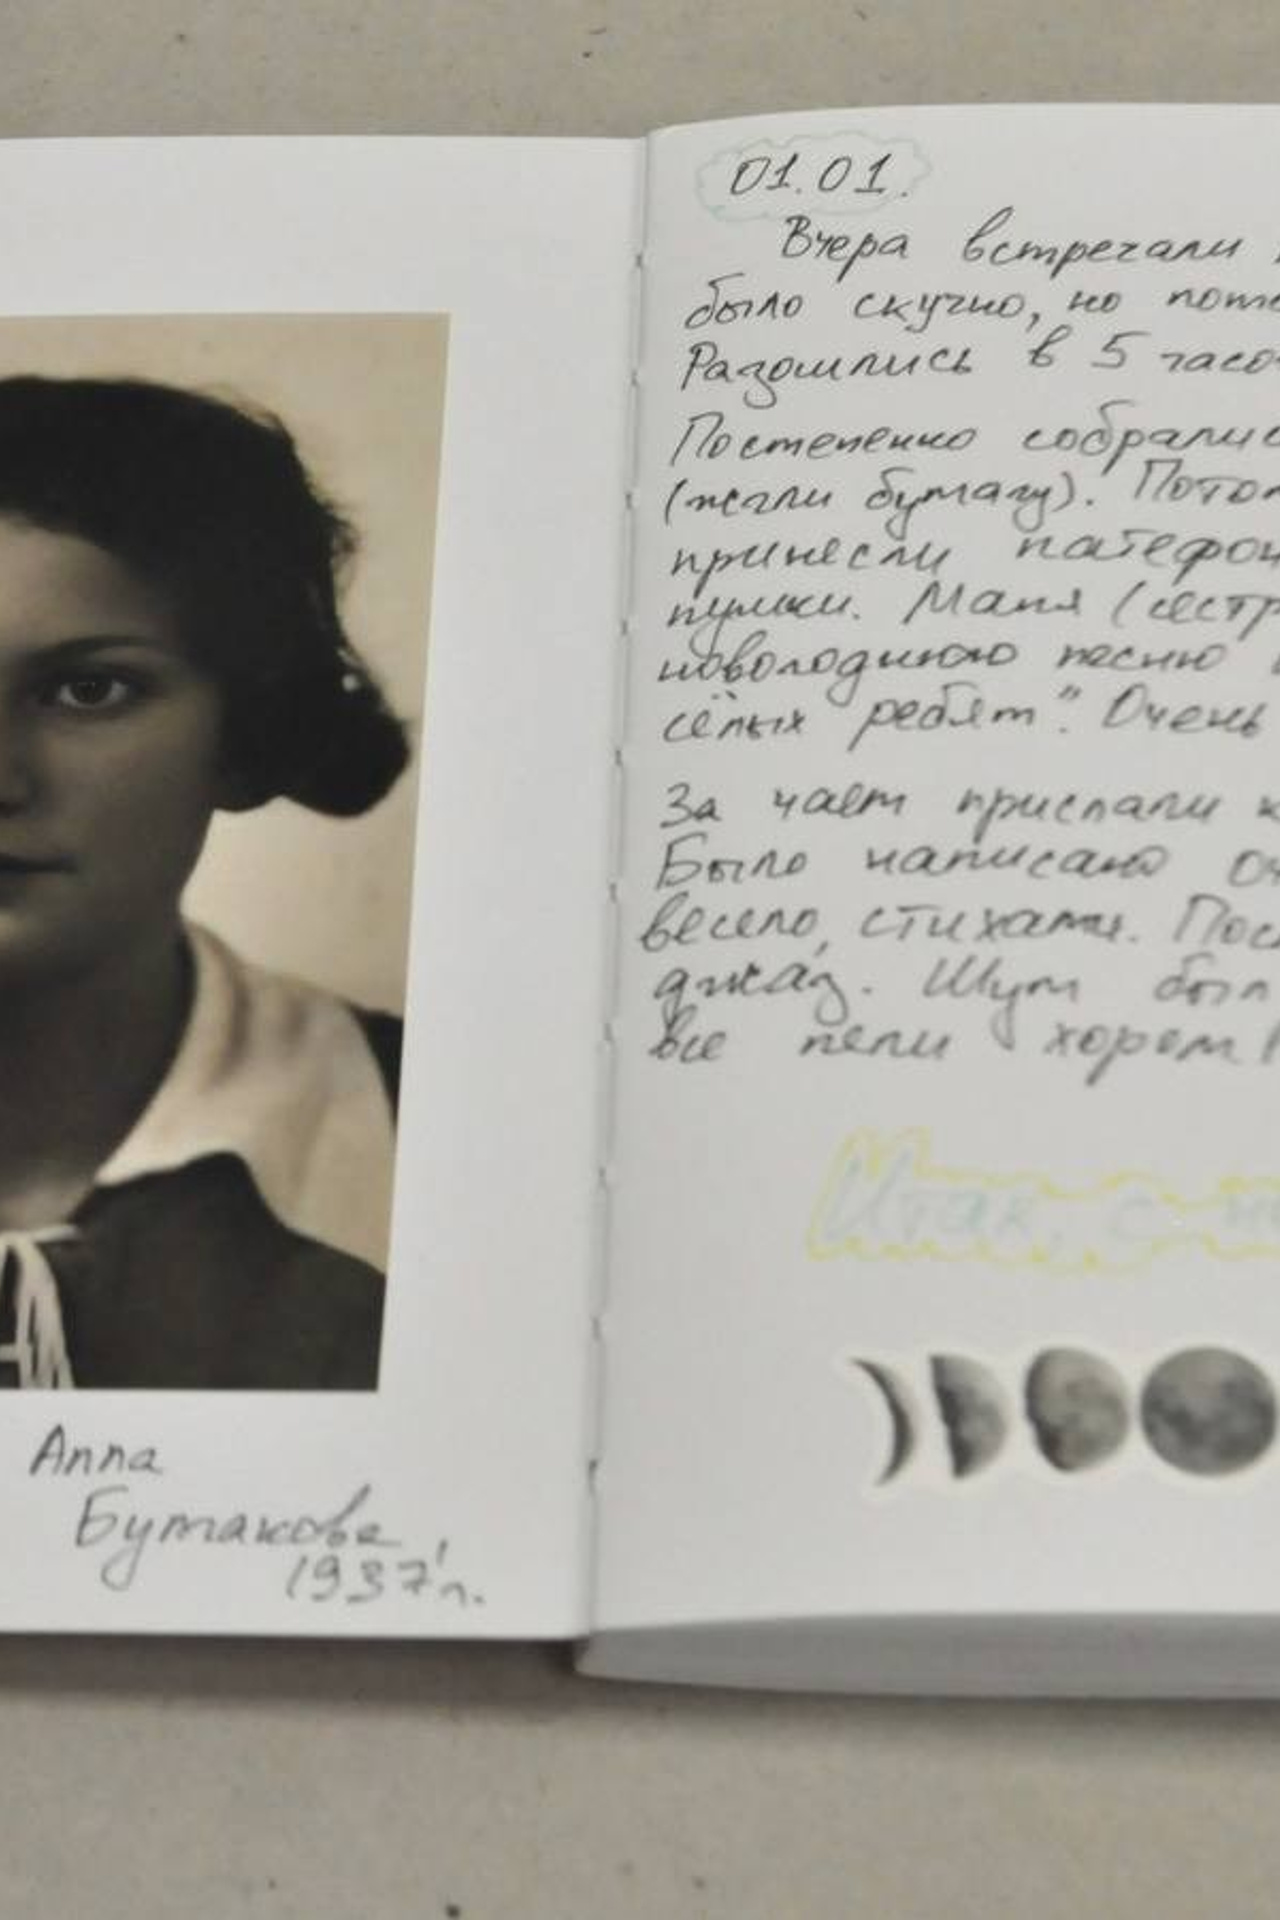 Анна
Бутакова
1937 г.
01.01.
Вчера встречали
было скучно, но пото
Разошлись в 5 часо
Постепенно собралис
(жгли бумагу). Потом
принесли патефон
пушки. Маня (сестр
новогоднюю песню
сёлых ребят". Очень
За чаем прислали к
Было написано оч
весело, стихами. Пос
джаз. Шум был
все пели хором!
Итак, с но